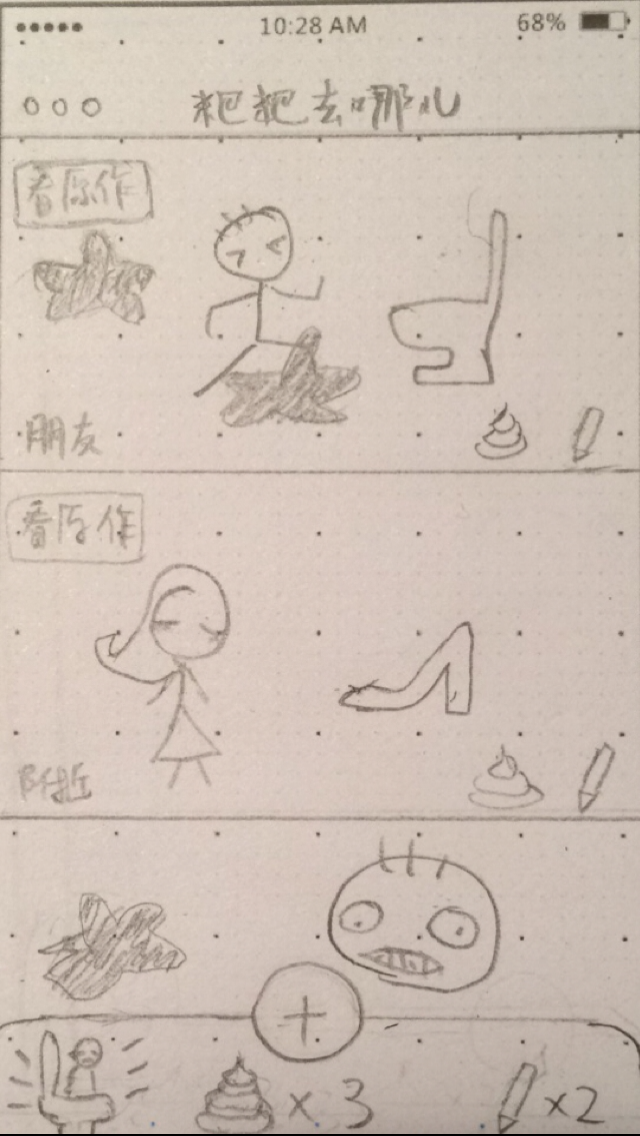 10:28 AM 68%
粑粑去哪儿
看原作
朋友
看原作
附近
+
×3 ×2